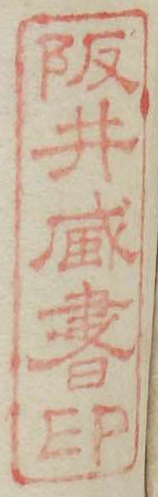 阪井蔵書印